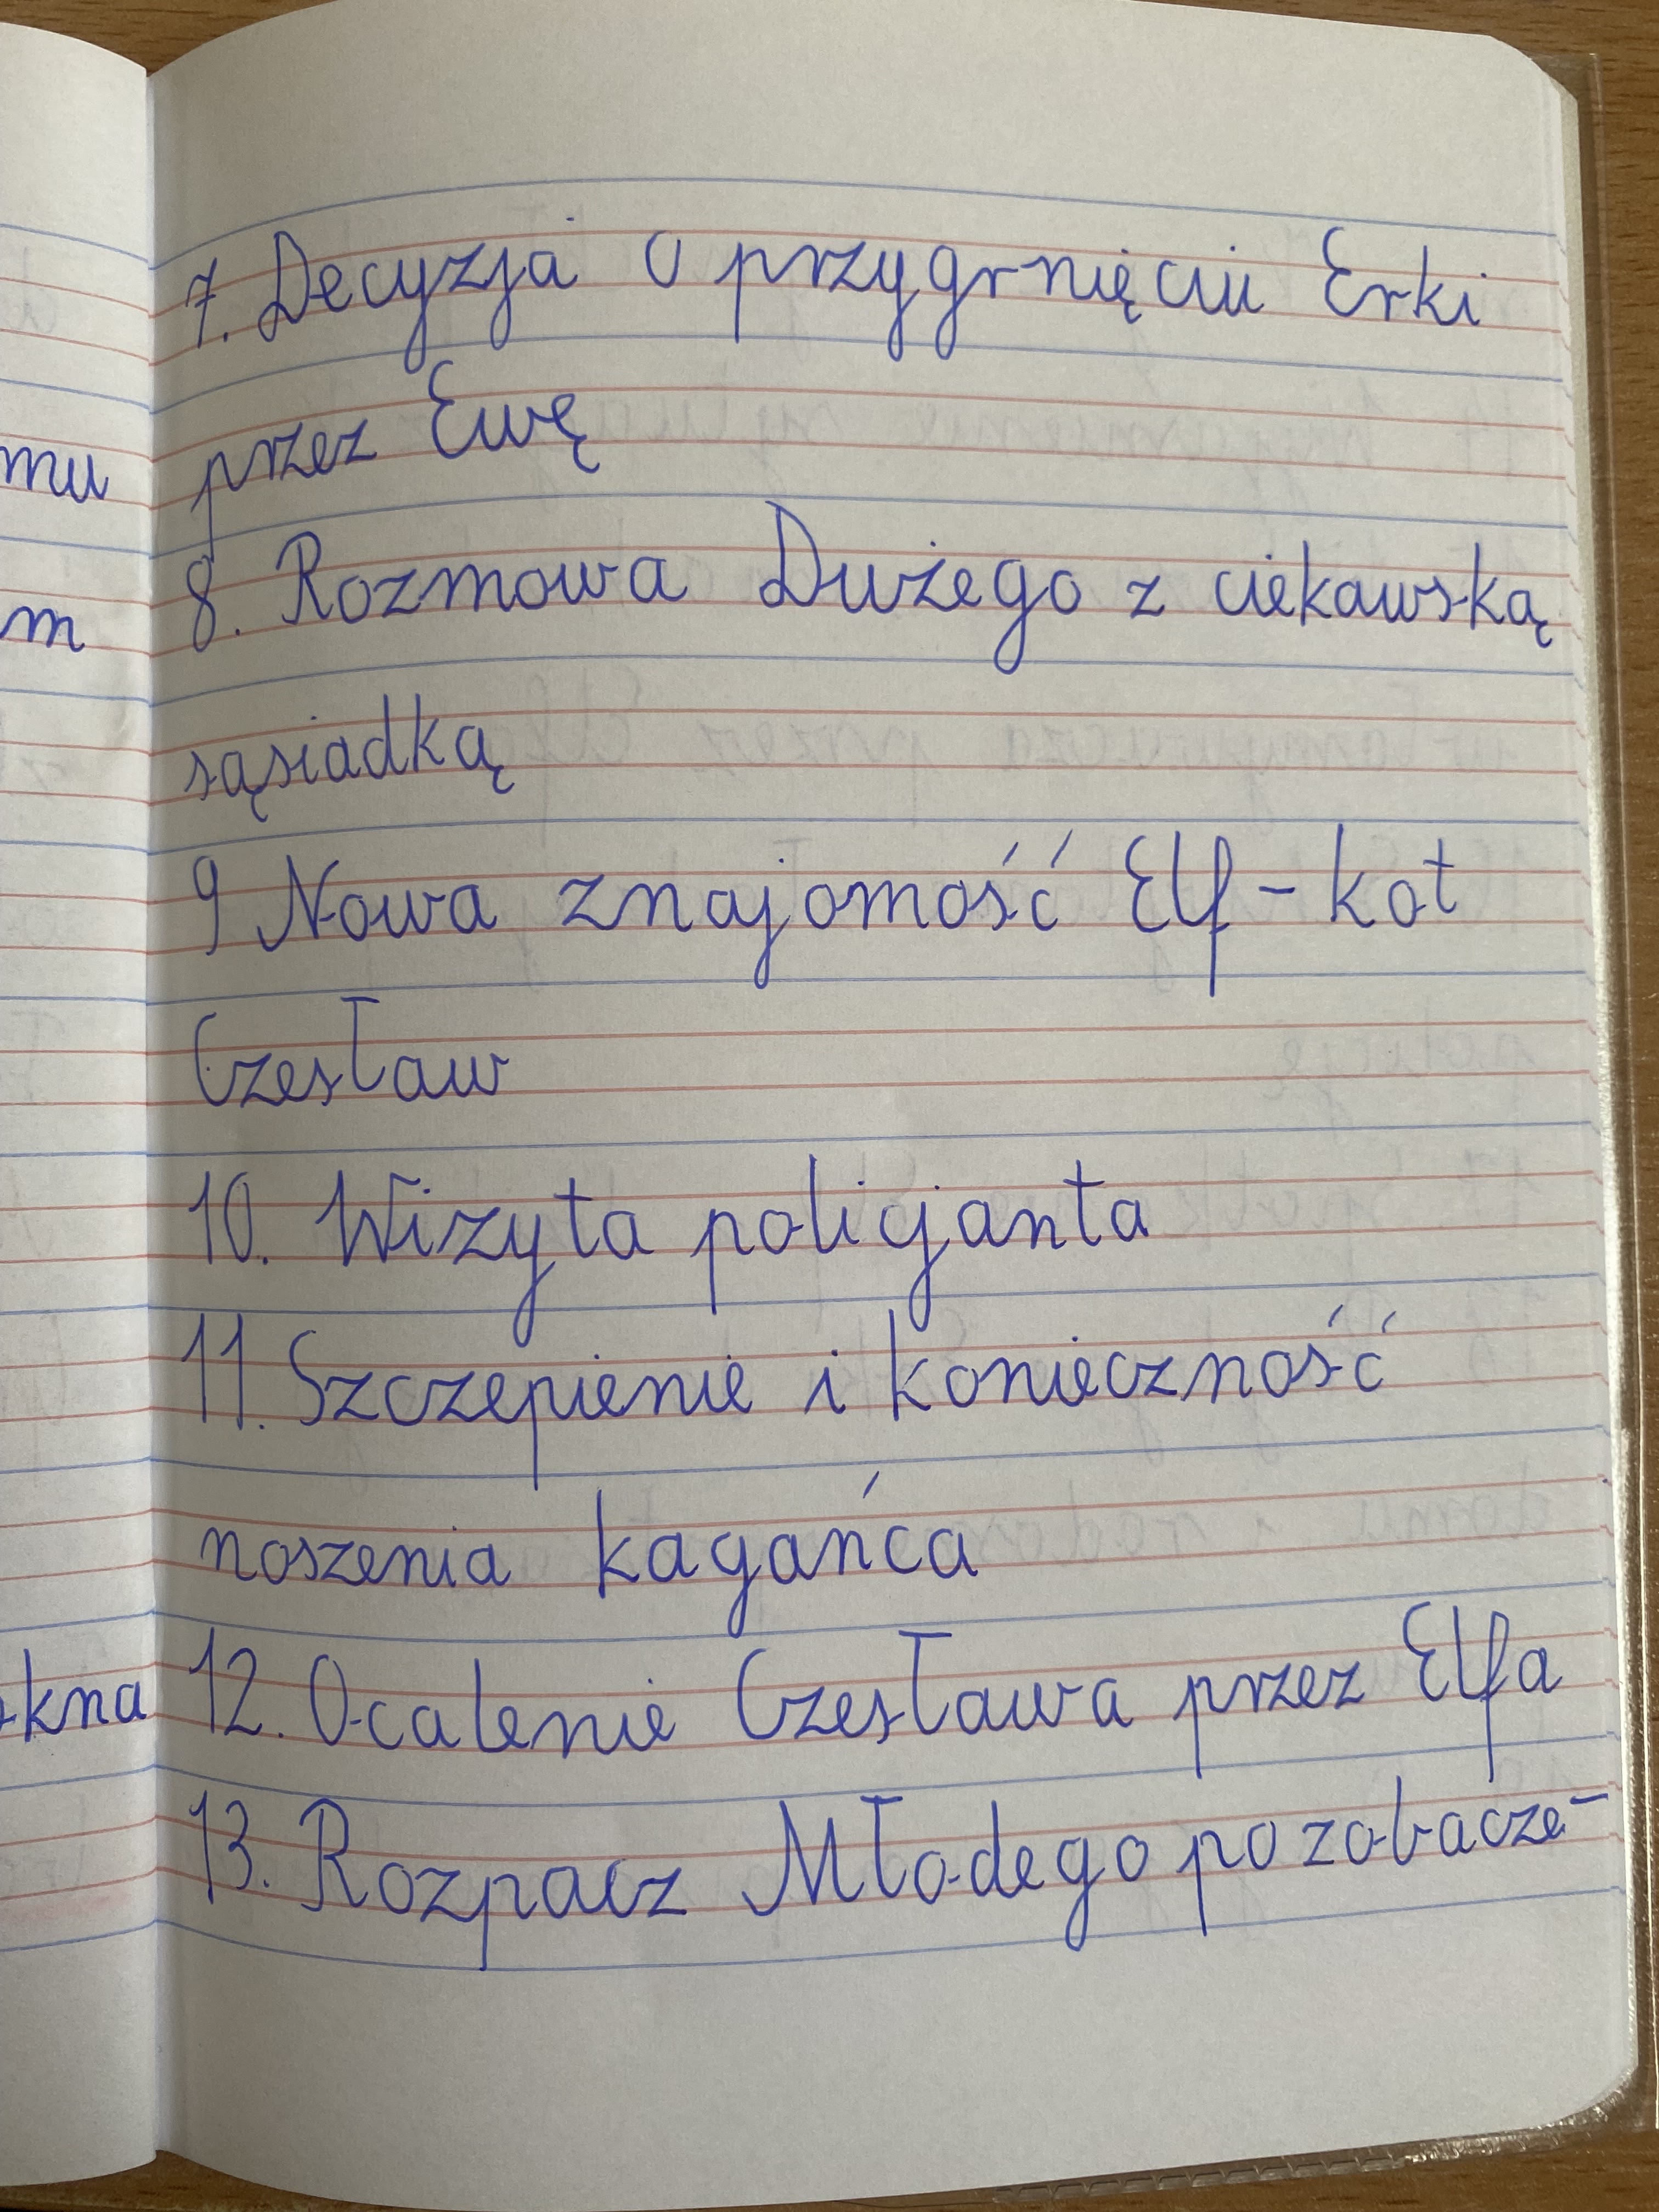 7. Decyzja o przygrnięciu Erki
przez Ewę
8. Rozmowa Dużego z ciekawską
sąsiadką
9 Nowa znajomość Elf - kot
Czesław
10. Wizyta policjanta
11. Szczepienie i konieczność
noszenia kagańca
12. Ocalenie Czesława przez Elfa
13. Rozpacz Młodego po zobacze-
mu
m
skna